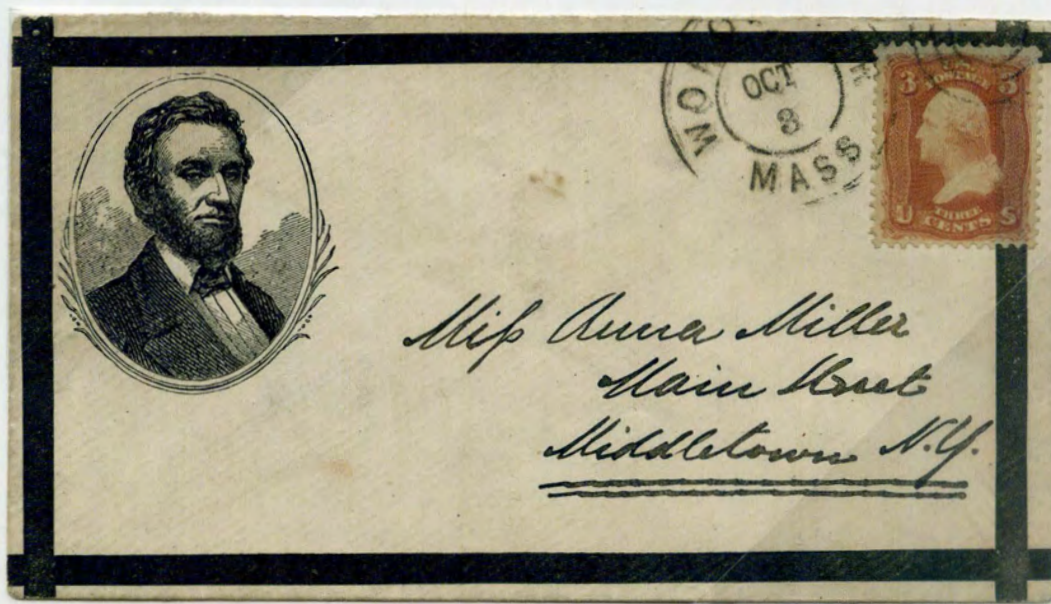 OCT
3
MASS
3 U.S. POSTAGE 3
U THREE CENTS S
Miſs Anna Miller
Main Street
Middletown N.Y.